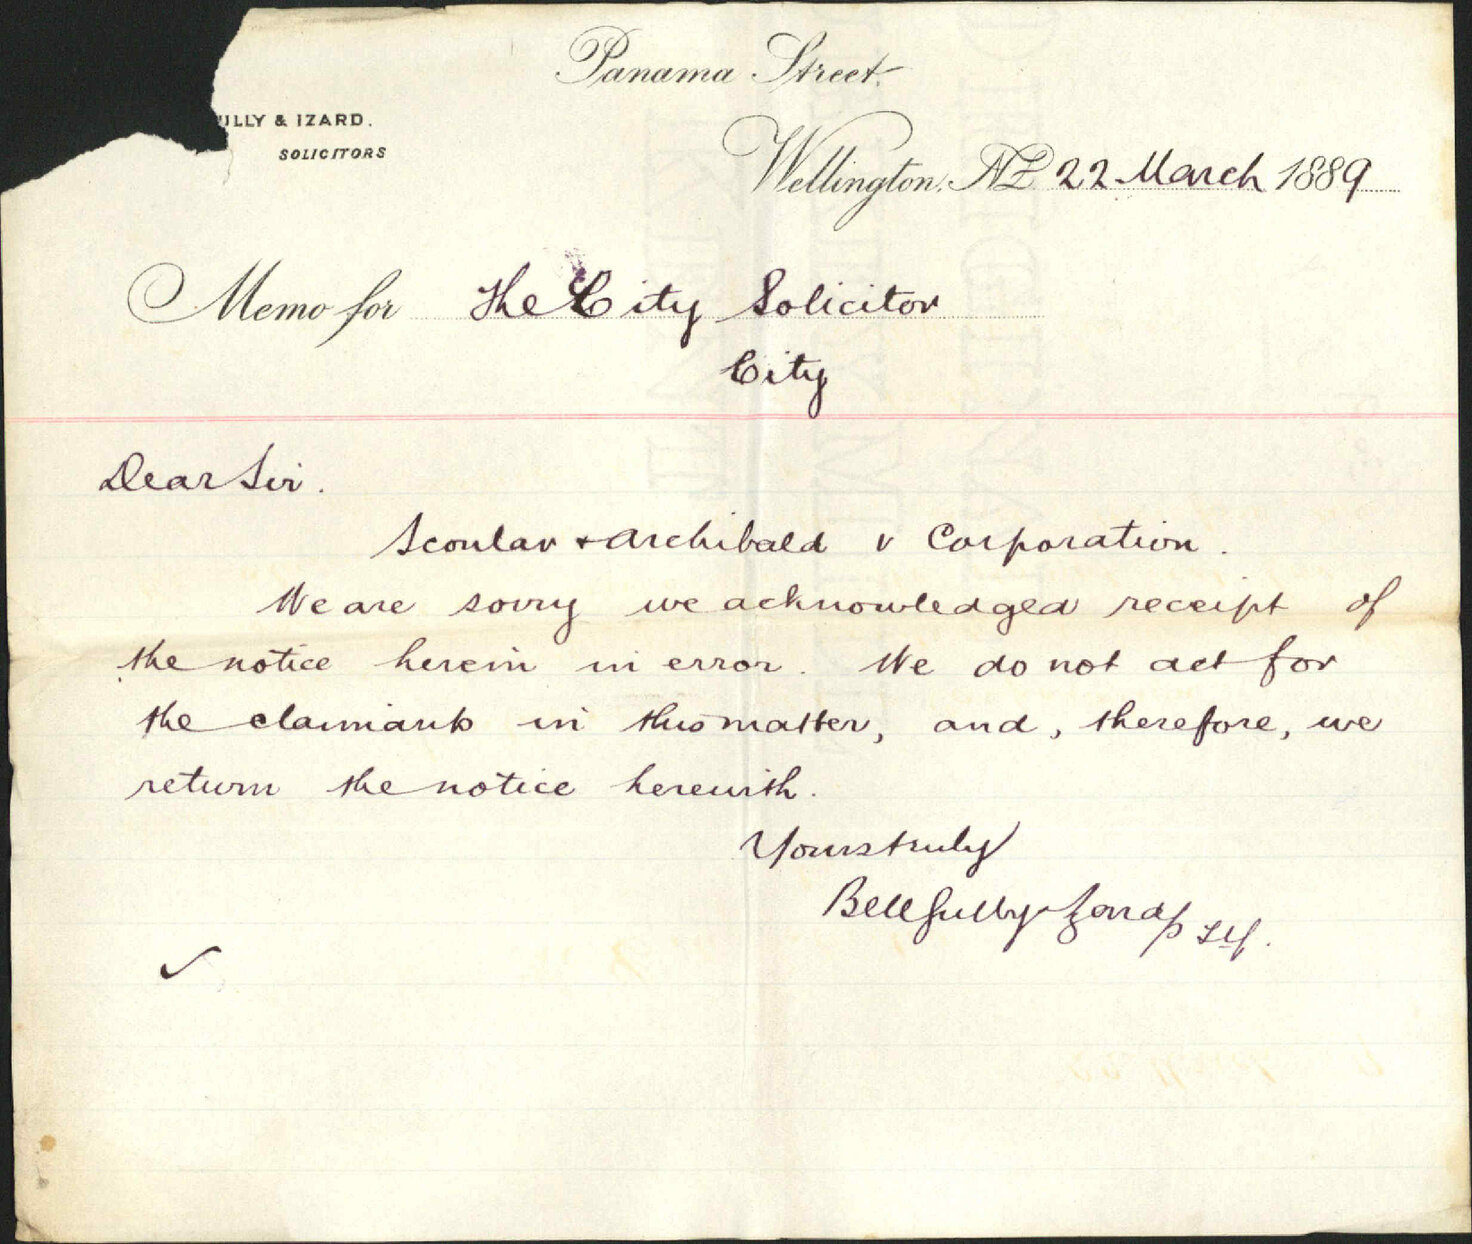 Panama Street.
ULLY & IZARD.
SOLICITORS
Wellington, NZ 22 March 1889
Memo for The City Solicitor
City
Dear Sir.
Scoular & Archibald v Corporation.
We are sorry we acknowledged receipt of
the notice herein in error. We do not act for
the claimants in this matter, and, therefore, we
return the notice herewith.
Yours truly
Bell Gully & Izard